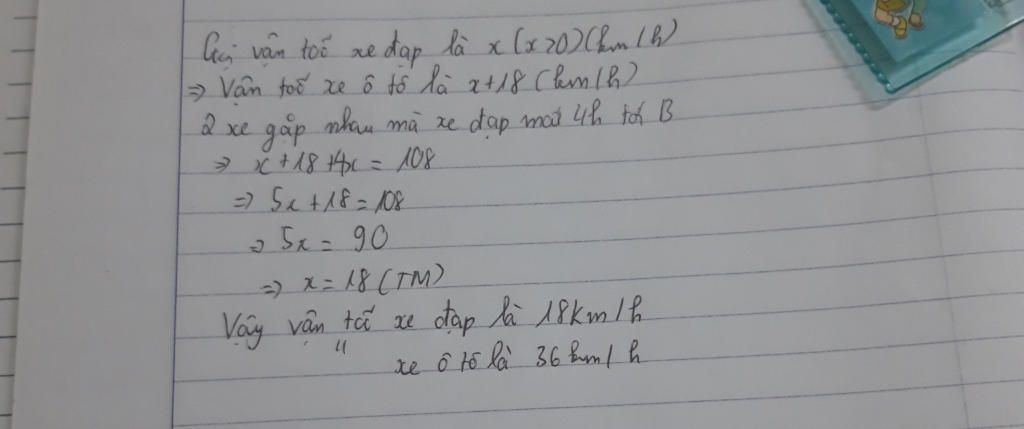 Gọi vận tốc xe đạp là x (x>0) (km/h)
=> Vận tốc xe ô tô là x+18 (km/h)
2 xe gặp nhau mà xe đạp mất 4h tới B
=> x+18+4x = 108
=> 5x+18=108
=> 5x = 90
=> x = 18 (TM)
Vậy vận tốc xe đạp là 18km/h
" xe ô tô là 36 km/h